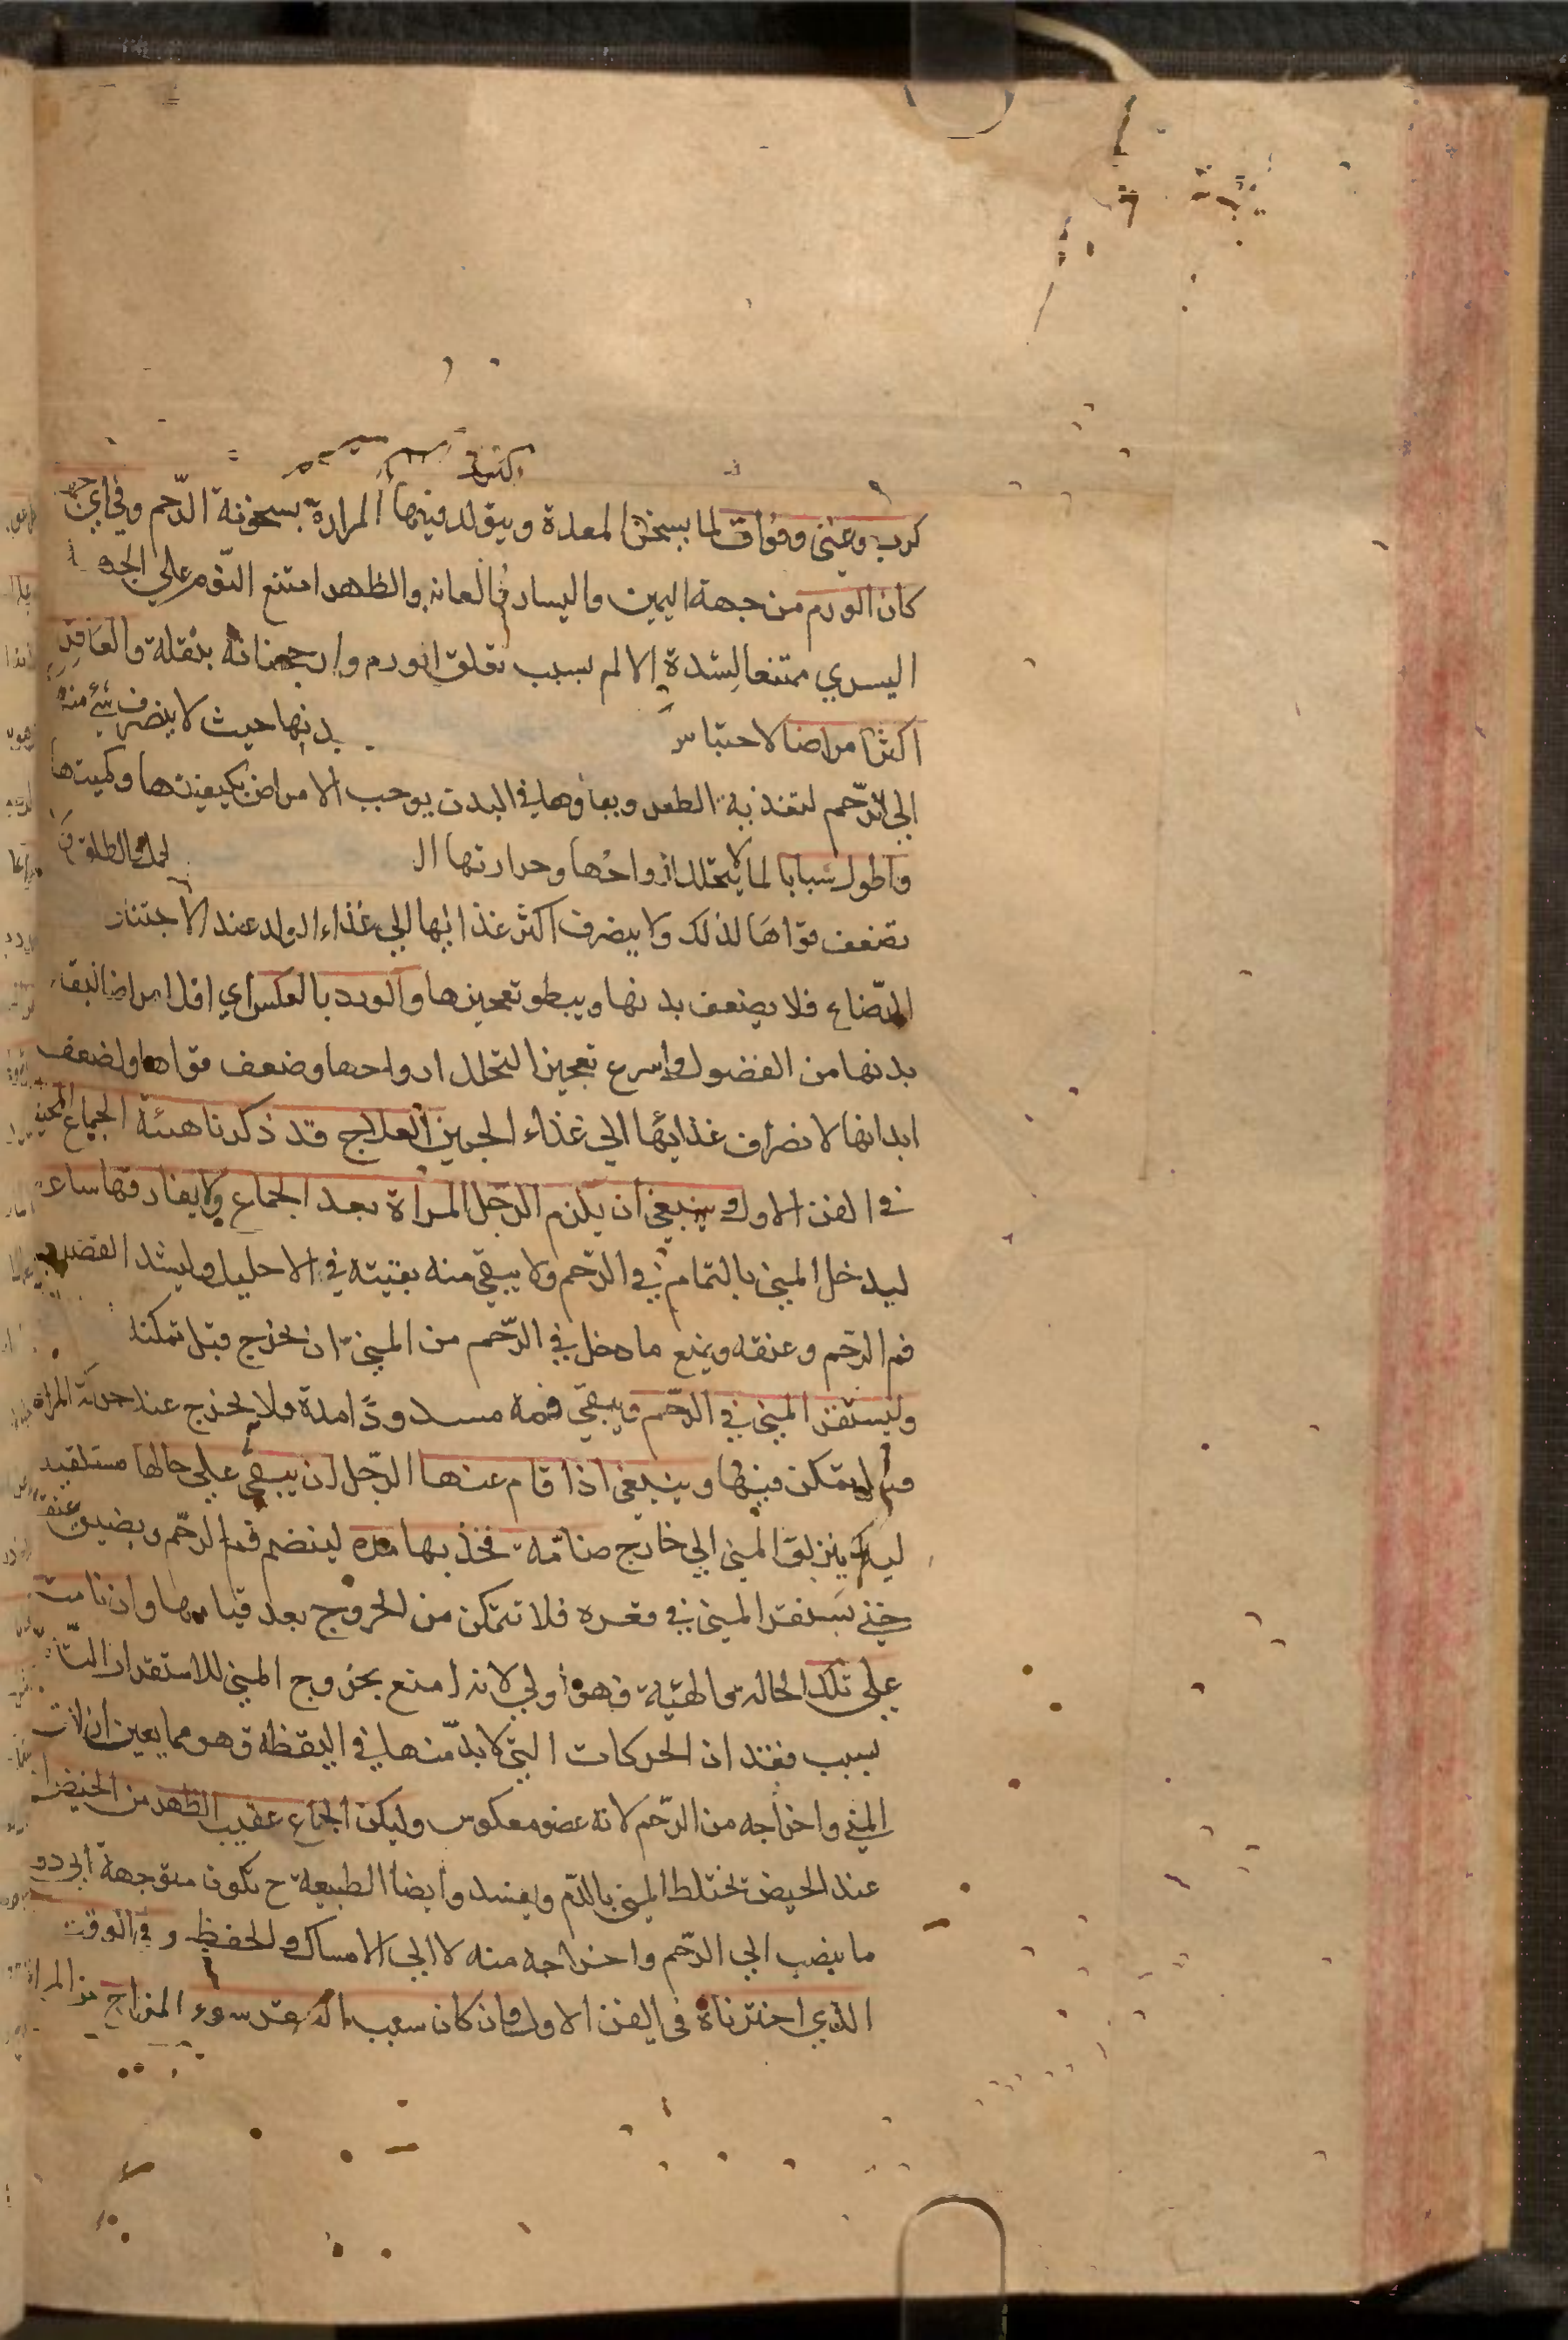 كرب وغثى وفواق لما يسخن المعدة ويتولد فيها المرارة بسخونة الرّحم وفي اي
كان الورم من جهة اليمين واليسار والعانه والظهر امتنع النّوم علي الجهة
اليسري ممتنعا لشدة الالم بسبب تعلق الورم وارجحنانه بثقله والعاقر
اكثر امراضا لاحتباس بدنها حيث لا ينصرف شئ منه
الي الرّحم لتغذية الطفل وبقاؤها في البدن يوجب الامراض بكيفيتها وكميتها
واطول شبابا لما لا يتحلل ارواحها وحرارتها الطلق
تضعف قواها لذلك ولا ينصرف اكثر غذائها الي غذاء الولد عند الاجتنان
الرّضاع فلا يضعف بدنها ويبطو تعجيزها والولود بالعكس اي اقل امراضا لنقاء
بدنها من الفضول واسرع تعجيزا لتحلل ارواحها وضعف قواها ولضعف
ابدانها لانصراف غذائها الي غذاء الجنين العلاج قد ذكرنا هيئة الجماع المحبل
في الفن الاول وينبغي ان يلزم الرّجل المراة بعد الجماع ولا يفارقها ساعة
ليدخل المني بالتمام في الرّحم ولا يبقي منه بقيته في الاحليل وليشد القضيب
فم الرّحم وعنقه ويمنع ما دخل في الرّحم من المني ان يخرج قبل تمكنه
وليستقر المني في الرّحم ويبقي فمه مسدودًا مدة فلا يخرج عند حركة المراة
قبل تمكن فيها وينبغي اذا قام عنها الرّجل ان يبقي علي حالها مستلقية
ليلا ينزلق المني الي خارج ضامّة فخذيها مدة لينضم فم الرحم ويضيق عنقه
حتي يستقر المني في مقره فلا تتمكن من الخروج بعد قيامها وان نامت
علي تلك الحالة والهيّة فهو اولي لانه امنع بخروج المني للاستقرار التّام
بسبب فقدان الحركات التي لا بدّ منها في اليقظة وهو مما يعين
المني واخراجه من الرّحم لانه عضو معكوس وليكن الجماع عقيب الطهر من الحيض
عند الحيض يختلط المني بالدّم ويفسد وايضا الطبيعة ح تكون متوجهة الي دفع
ما ينصب الي الرّحم واخراجه منه لا الي الامساك والحفظ وفي الوقت
الذي اخترناه في الفن الاول وان كان سبب العقر سوء المزاج